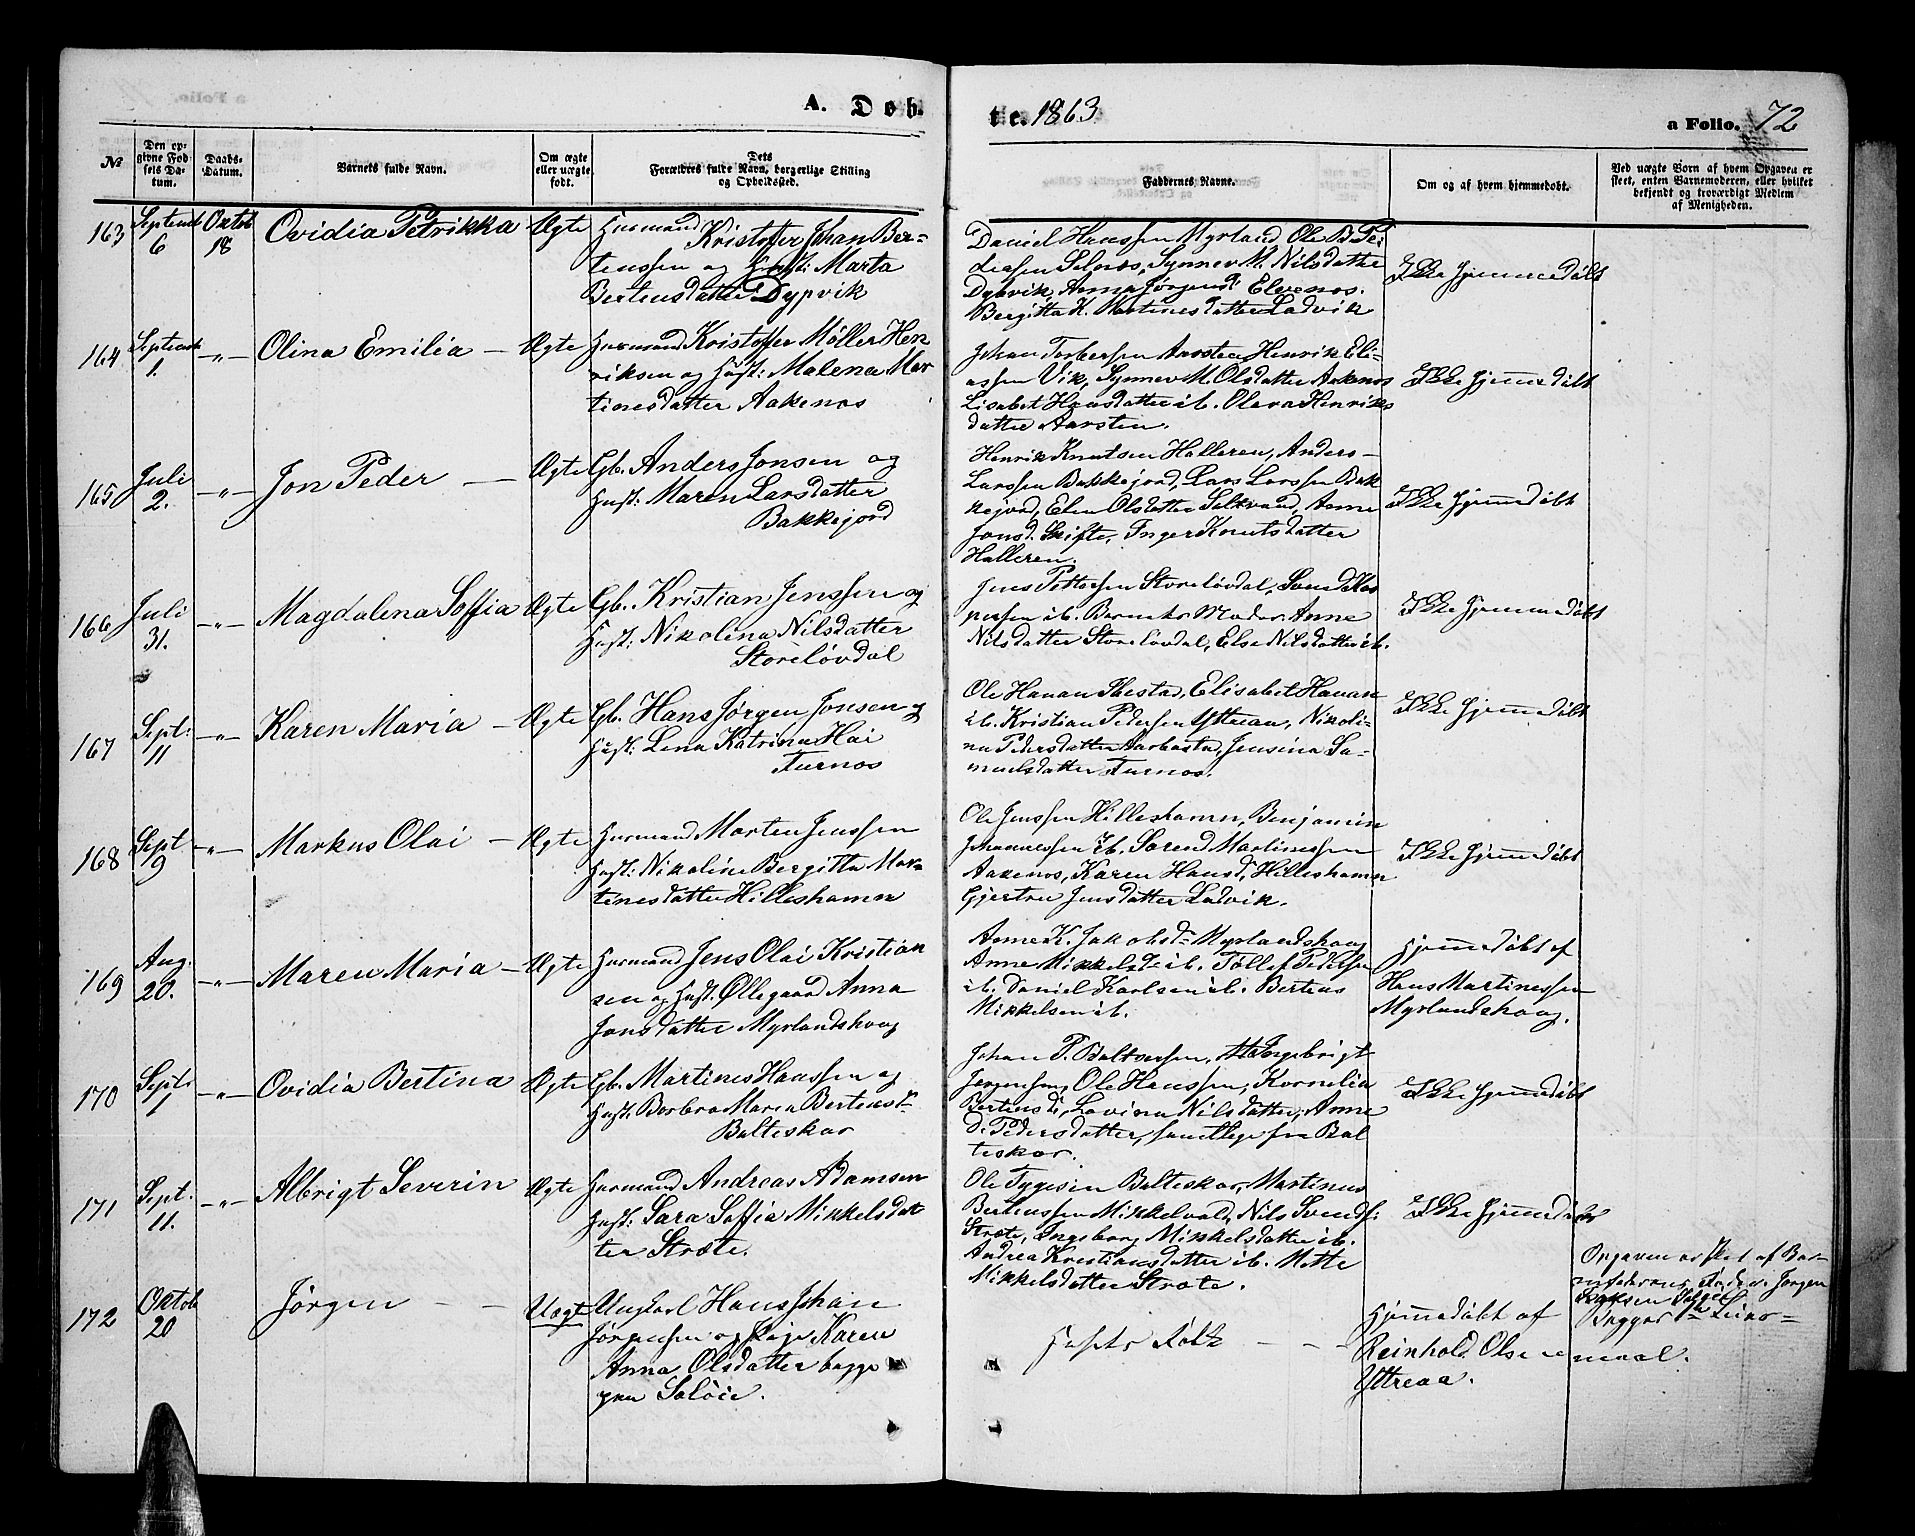 A. Døb
te. 1863
a Folio. 72
№
Den op-
givne Fød-
sels Da-
tum.
Daabs-
Datum.
Barnets fulde Navn.
Om ægte
eller uægte
født.
Dets
Forældres fulde Navn, borgerlige Stilling
og Opholdssted.
Faddernes Navne.
Om og af hvem hjemmedøbt.
Ved uægte Børn af hvem Opgaven er
skeet, enten Barnemoderen, eller hvilket
bekjendt og troværdigt Medlem
af Menigheden.
163 Septemb 6 Oktob 18 Ovidia Petrikka Ægte Husmand
Kristoffer Johan Ber-
tenssen og Hust: Marta
Bertensdatter Dypvik
Daniel Hanssen Myrland, Ole P. Pe-
dersen Selnes, Synnev M. Nilsdatter
Dypvik, Anna Jørgensd. Elvenes.
Bergitta K. Martinesdatter Ladvik
Ikke hjemmedøbt
164 Septemb 1. -"- Olina Emilia — Ægte Husmand Kristoffer Møller Hen
riksen og Hust: Malena Mar
tinesdatter Aakenes
Johan Torbersen Aarsten, Henrik Eli-
assen Vik, Synnev M. Olsdatter Aakenes
Lisabet Hansdatter ib. Olava Henriks
datter Aarsten.
Ikke hjemmedøbt
165 Juli 2. -"- Jon Peder — Ægte Gb. Anders Jonsen og
Hust: Maren Larsdatter
Bakkejord
Henrik Knutsen Halleren, Anders
Larssen Bakkejord, Lars Larssen Bak
kejord, Elen Olsdatter Saltvand, Anne
Jonsd. Skifte, Inger Knutsdatter
Halleren.
Ikke hjemmedøbt
166 Juli 31. -"- Magdalena Soffia Ægte Gb. Kristian Jenssen og
Hust: Nikolina Nilsdatter
Storeløvdal
Jens Pettersen Storeløvdal, Svend Kas
persen ib. Barnets Moder, Anne
Nilsdatter Storeløvdal, Else Nilsdatter ib.
Ikke hjemmedøbt
167 Sept: 11 -"- Karen Maria — Ægte Gb. Hans Jørgen Jonsen og
Hust: Lena Katrina Hai
Turnos
Ole Hanan Ibestad, Elisabet Hanan
ib. Kristian Pedersen Yttreaa, Nikoli-
na Pedersdatter Aarbostad, Jensina Sa-
muelsdatter Turnos.
Ikke hjemmedøbt
168 Sept 9 -"- Markus Olai — Ægte Husmand Morten Jenssen
Hust: Nikoline Bergitta Mar-
tinesdatter Hilleshamn
Ole Jenssen Hilleshamn, Benjamin
Johannessen ib. Søren Martinessen
Aakenes, Karen Hansd, Hilleshamn
Gjertru Jensdatter Ladvik.
Ikke hjemmedøbt
169 Aug. 20. -"- Maren Maria — Ægte Husmand Jens Olai Kristian
sen og Hust. Øllegaard Anna
Jonsdatter Myrlandshaug
Anne K. Jakobsdr Myrlandshaug
Anne Mikkelsd. ib. Tollef Pedersen
ib. Daniel Karlsen ib. Berteus
Mikkelsen ib.
Hjemmedøbt af
Hans Martinessen
Myrlandshaug.
170 Sept: 1 -"- Ovidia Bertina Ægte Gb. Martines Hanssen og
Hust: Barbra Maren Bertensdr
Balteskar
Johan P. Baltsersen, Ingebrigt
Jørgensen, Ole Hanssen, Kornelia
Bertensd, Lovina Nilsdatter, Anne
D. Pedersdatter, samtlige fra Bal
teskar.
Ikke hjemmedøbt
171 Sept. 11. -"- Albrigt Severin Ægte Husmand Andreas Adamsen
Hust: Sara Soffia Mikkelsdat
ter Stræte.
Ole Tygesen Balteskar, Martinus
Bertenssen Mikkelvold, Nils Svends.
Stræte, Ingeborg Mikkelsdatter ib.
Andrea Kristiansdatter ib. Mette
Mikkelsdatter Stræte.
Ikke hjemmedøbt
172 Oktob 20 Jørgen — — Uægt Ungkarl Hans Johan
Jørgensen og Pige Karen
Anna Olsdatter begge
paa Saløie.
Husets Folk — — —
Hjemmedøbt af
Reinhold Olsen
Yttreaa.
Opgaven er sket af Bar-
nefaderens Fader Jørgen